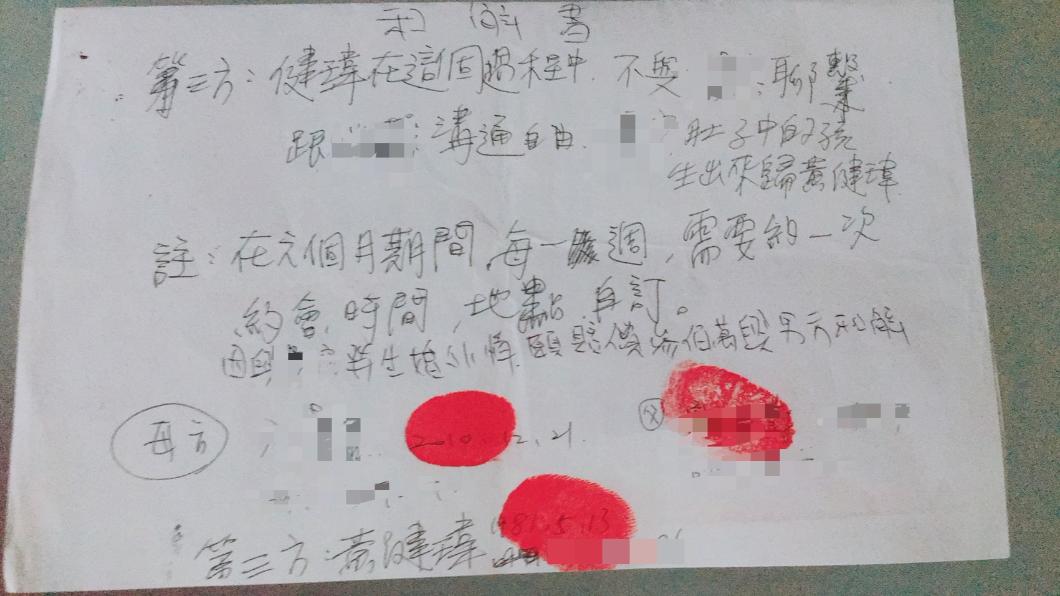 和解書
第三方:健瑋在這個過程中.不與 :聊
跟 :溝通自由. 肚子中的孩
生出來歸黃健瑋
註:在六個月期間,每一週,需要約一次
約會,時間,地點,自訂。
因與 等生 小 願賠償 佰萬與男方和解
母方 : 2010.12.21. 父
第三方:黃健瑋 81.5.13